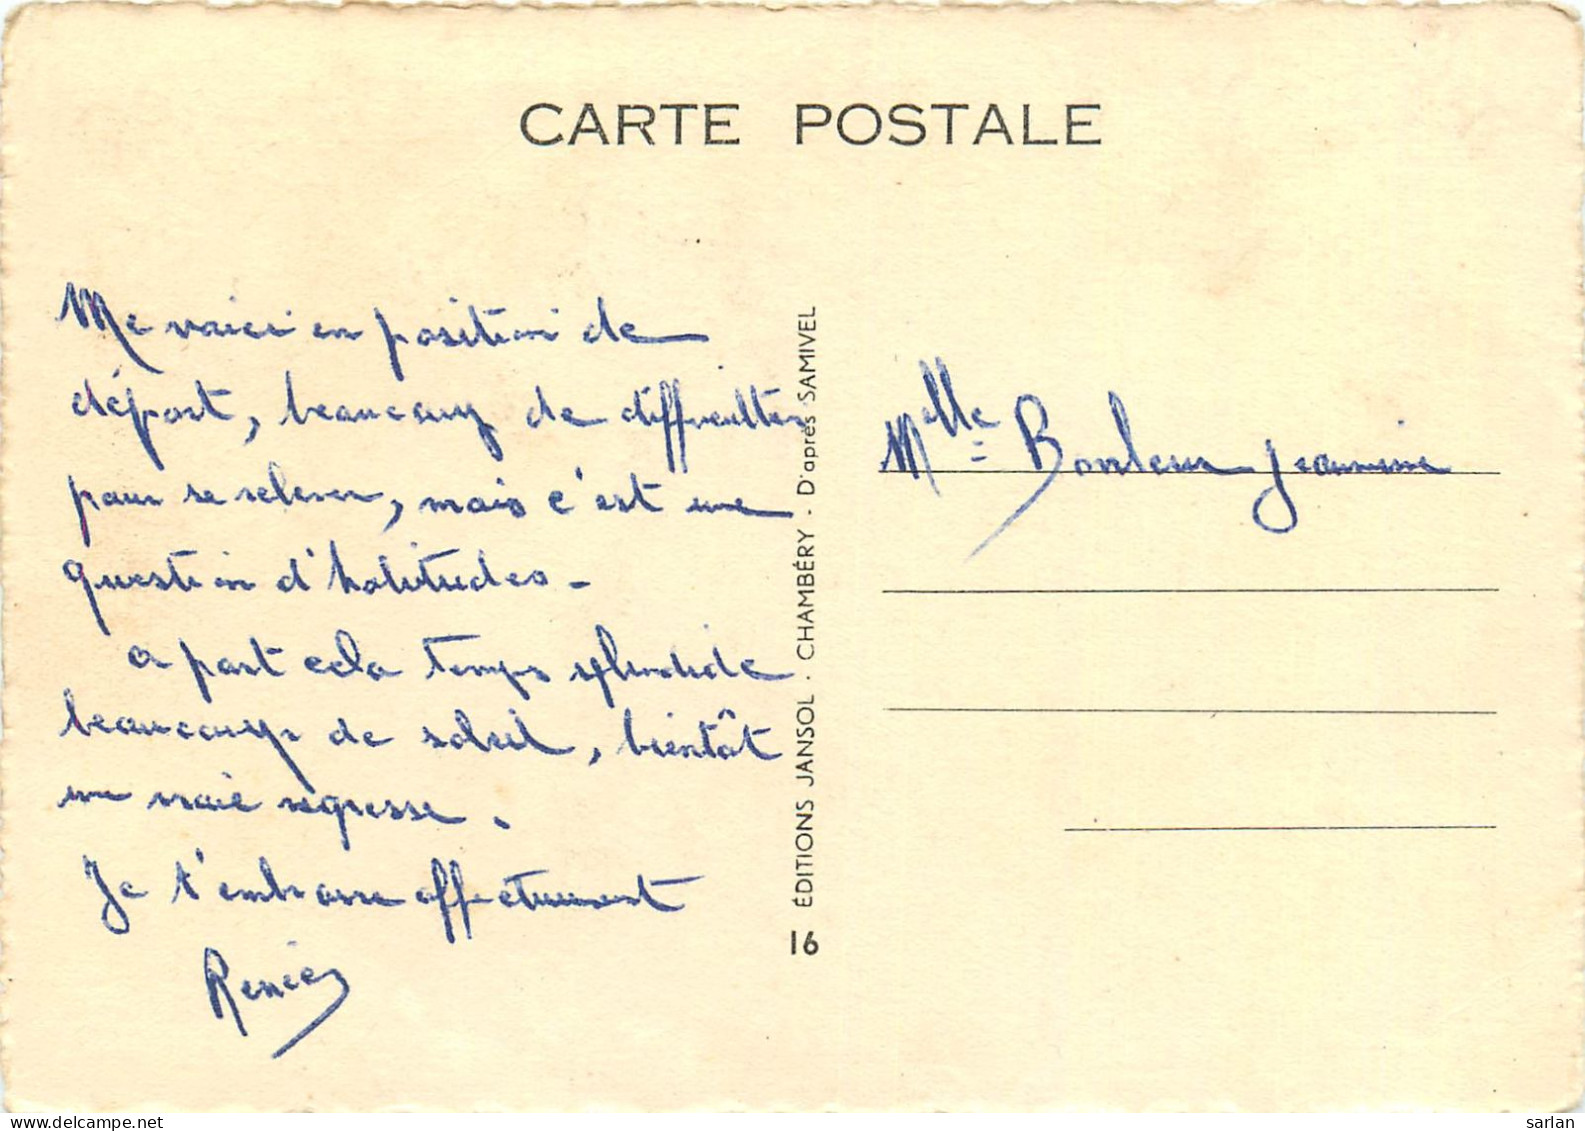 CARTE POSTALE
Me voici en position de
départ, beaucoup de difficultés
pour se relever, mais c'est une
question d'habitudes -
a part cela temps splendide
beaucoup de soleil, bientôt
une vraie négresse.
Je t'embrasse affectueusement
Renée
ÉDITIONS JANSOL . CHAMBÉRY . D'après SAMIVEL
16
Melle Jeannine
delcampe.net
sarlan